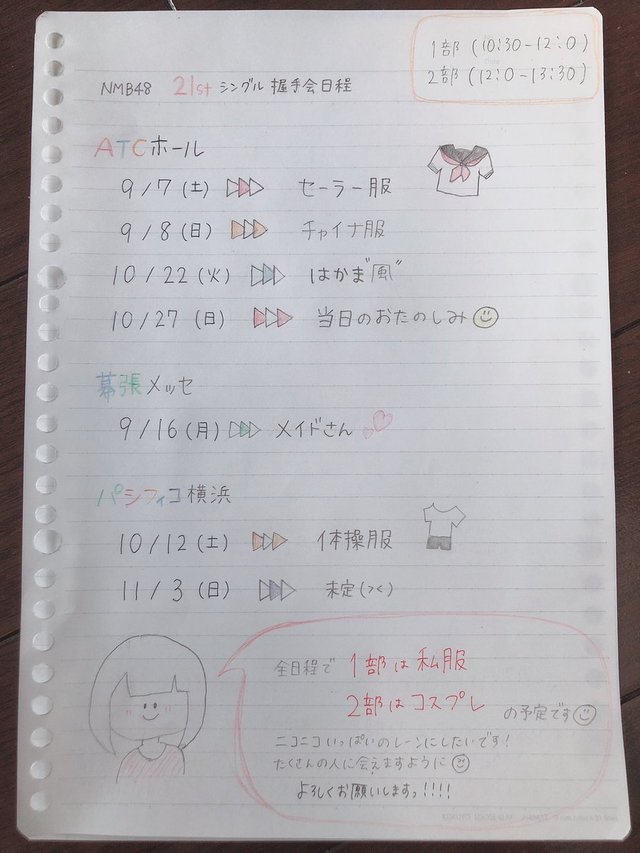 1部 (10:30-12:0)
2部 (12:0-13:30)
NMB48 21st シングル 握手会日程
ATCホール
9/7(土) ▷▷▷ セーラー服
9/8(日) ▷▷▷ チャイナ服
10/22(火) ▷▷▷ はかま"風"
10/27(日) ▷▷▷ 当日のおたのしみ
幕張メッセ
9/16(月) ▷▷▷ メイドさん
パシフィコ横浜
10/12(土) ▷▷▷ 体操服
11/3(日) ▷▷▷ 未定(つく)
全日程で 1部は私服
2部はコスプレ の予定です
ニコニコいっぱいのレーンにしたいです!
たくさんの人に会えますように
よろしくお願いしますっ!!!!